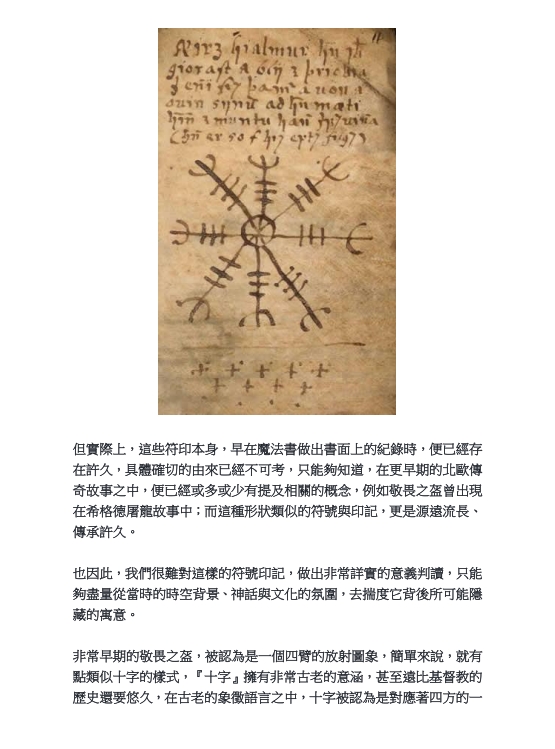 Ægirz hialmur hn sk
giorast a blÿ z þrickia
ovin sijnū ad hn mæti
但實際上，這些符印本身，早在魔法書做出書面上的紀錄時，便已經存
在許久，具體確切的由來已經不可考，只能夠知道，在更早期的北歐傳
奇故事之中，便已經或多或少有提及相關的概念，例如敬畏之盔曾出現
在希格德屠龍故事中；而這種形狀類似的符號與印記，更是源遠流長、
傳承許久。
也因此，我們很難對這樣的符號印記，做出非常詳實的意義判讀，只能
夠盡量從當時的時空背景、神話與文化的氛圍，去揣度它背後所可能隱
藏的寓意。
非常早期的敬畏之盔，被認為是一個四臂的放射圖象，簡單來說，就有
點類似十字的樣式，『十字』擁有非常古老的意涵，甚至遠比基督教的
歷史還要悠久，在古老的象徵語言之中，十字被認為是對應著四方的一